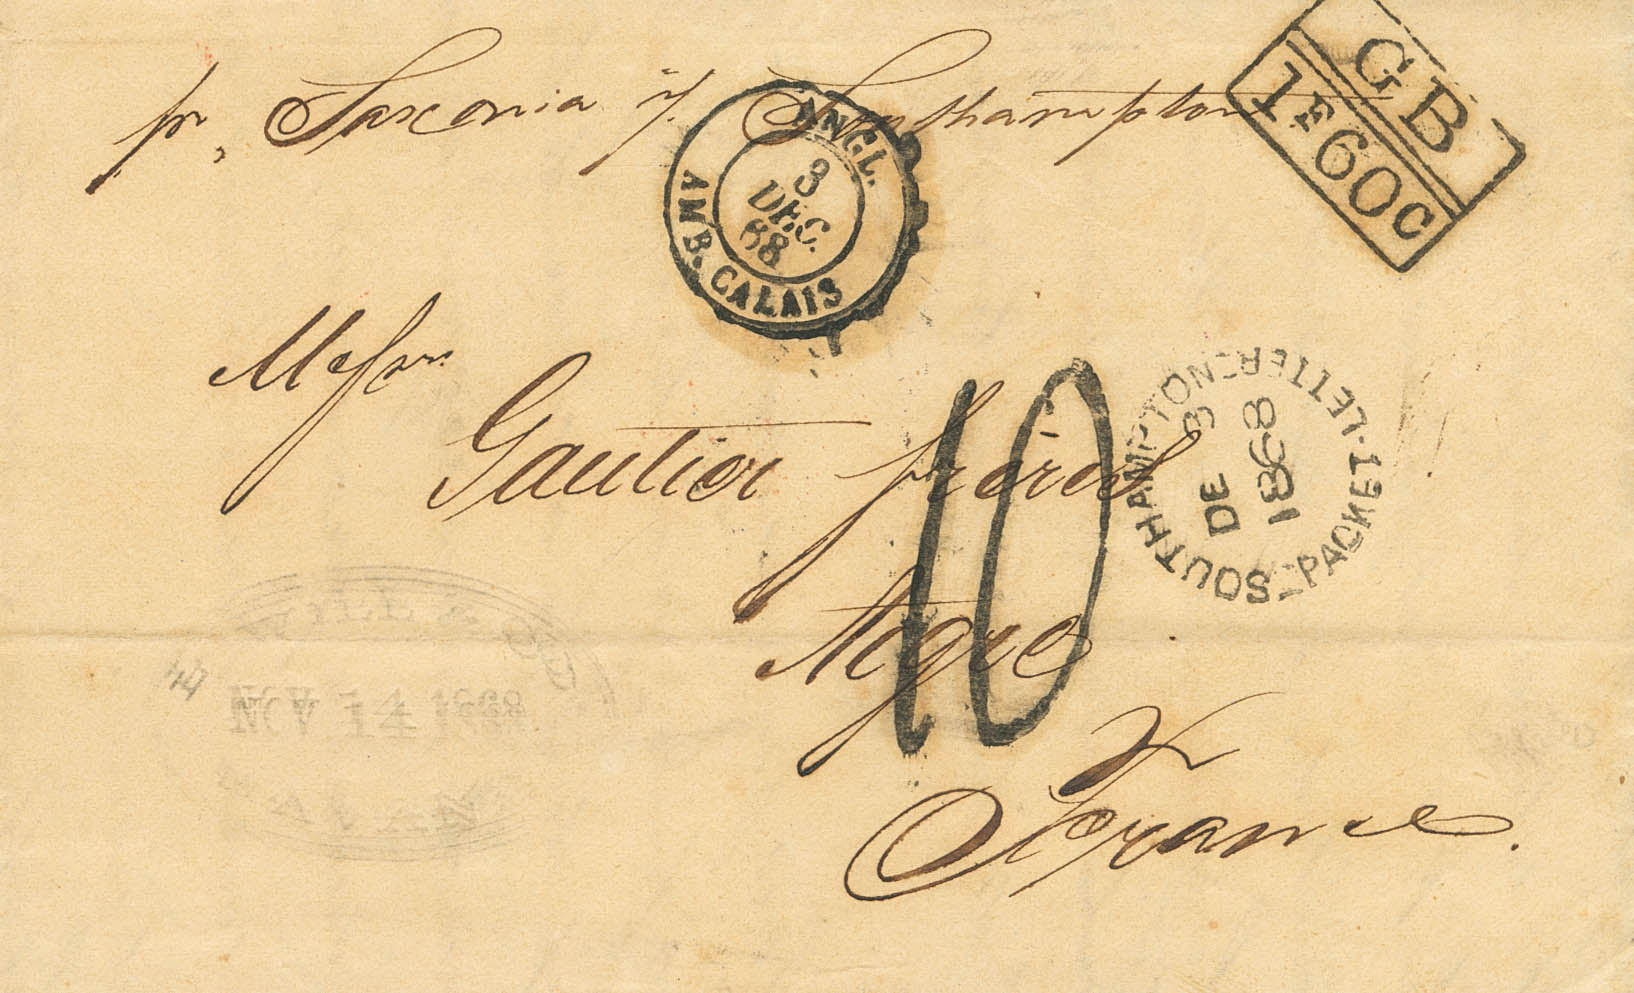 pr, Saxonia v/. Southampton
GB
1F60C
ANGL.
3
DEC.
68
AMB. CALAIS
Messrs
Gautier frères
10
SOUTHAMPTON
PACKET-LETTER
3
DE
1868
NOV 14 1868
France.